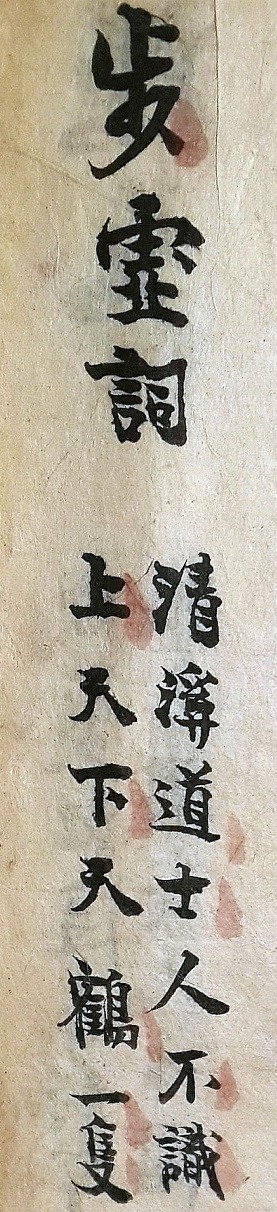 步虛詞
清溪道士人不識
上天下天鶴一隻